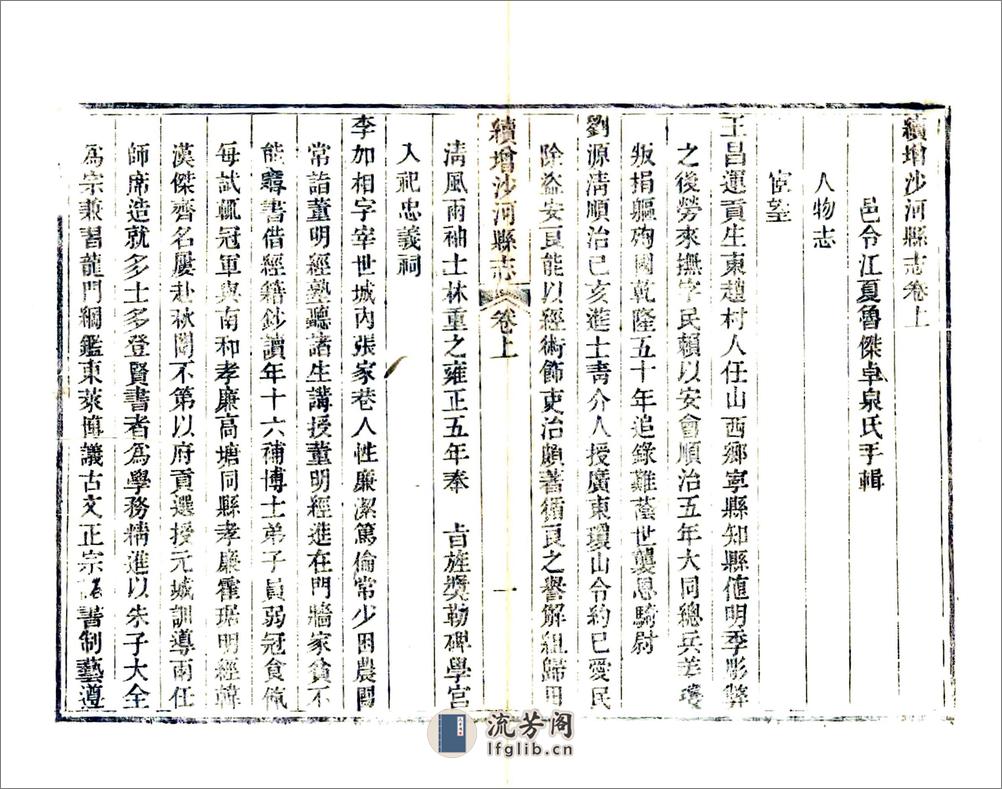 續增沙河縣志卷上
邑令江夏魯傑卓泉氏手輯
人物志
宦望
王昌運貢生東趙村人任山西鄉寧縣知縣值明季彫弊
之後勞來撫字民賴以安會順治五年大同總兵姜瓖
叛捐軀殉國乾隆五十年追錄難蔭世襲恩騎尉
劉源清順治己亥進士青介人授廣東瓊山令約已愛民
除盜安良能以經術飾吏治頗著循良之譽解組歸田
續增沙河縣志 卷上 一
清風兩袖士林重之雍正五年奉 旨旌獎勒碑學宮
入祀忠義祠
李如相字宰世城內張家巷人性廉潔篤倫常少困農間
常詣董明經塾聽諸生講授董明經進在門牆家貧不
能購書借經籍鈔讀年十六補博士弟子員弱冠食餼
每試輒冠軍與南和孝廉高塘同縣孝廉霍琚明經韓
漢傑齊名屢赴秋闈不第以府貢選授元城訓導兩任
師席造就多士多登賢書者為學務精進以朱子大全
為宗兼習龍門綱鑑東萊博議古文正宗 書制藝遵
流芳阁
lfglib.cn